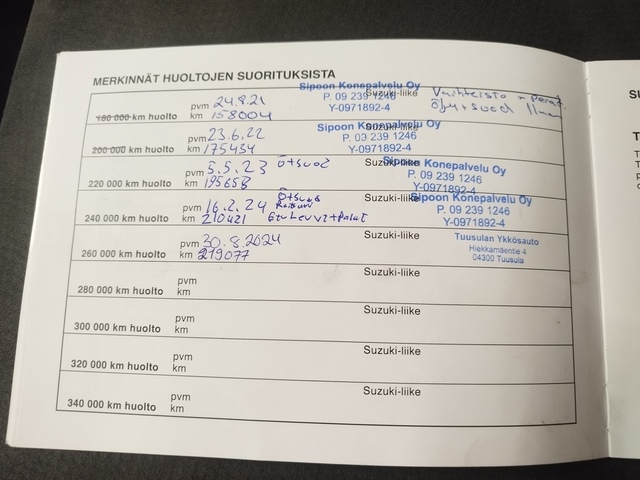 MERKINNÄT HUOLTOJEN SUORITUKSISTA
180 000 km huolto pvm 24.8.21 km 158004 Suzuki-liike
Sipoon Konepalvelu Oy
P. 09 239 1246
Y-0971892-4
Vaihteisto + perä
Öljy + suod
200 000 km huolto pvm 23.6.22 km 175434 Suzuki-liike
Sipoon Konepalvelu Oy
P. 09 239 1246
Y-0971892-4
220 000 km huolto pvm 5.5.23 km 195658 Ö+suod Suzuki-liike
Sipoon Konepalvelu Oy
P. 09 239 1246
Y-0971892-4
240 000 km huolto pvm 16.2.24 km 210421 Ö+suod Suzuki-liike
Sipoon Konepalvelu Oy
P. 09 239 1246
Y-0971892-4
260 000 km huolto pvm 30.8.2024 km 219077 Suzuki-liike
Tuusulan Ykkösauto
Hiekkamäentie 4
04300 Tuusula
280 000 km huolto pvm km Suzuki-liike
300 000 km huolto pvm km Suzuki-liike
320 000 km huolto pvm km Suzuki-liike
340 000 km huolto pvm km Suzuki-liike